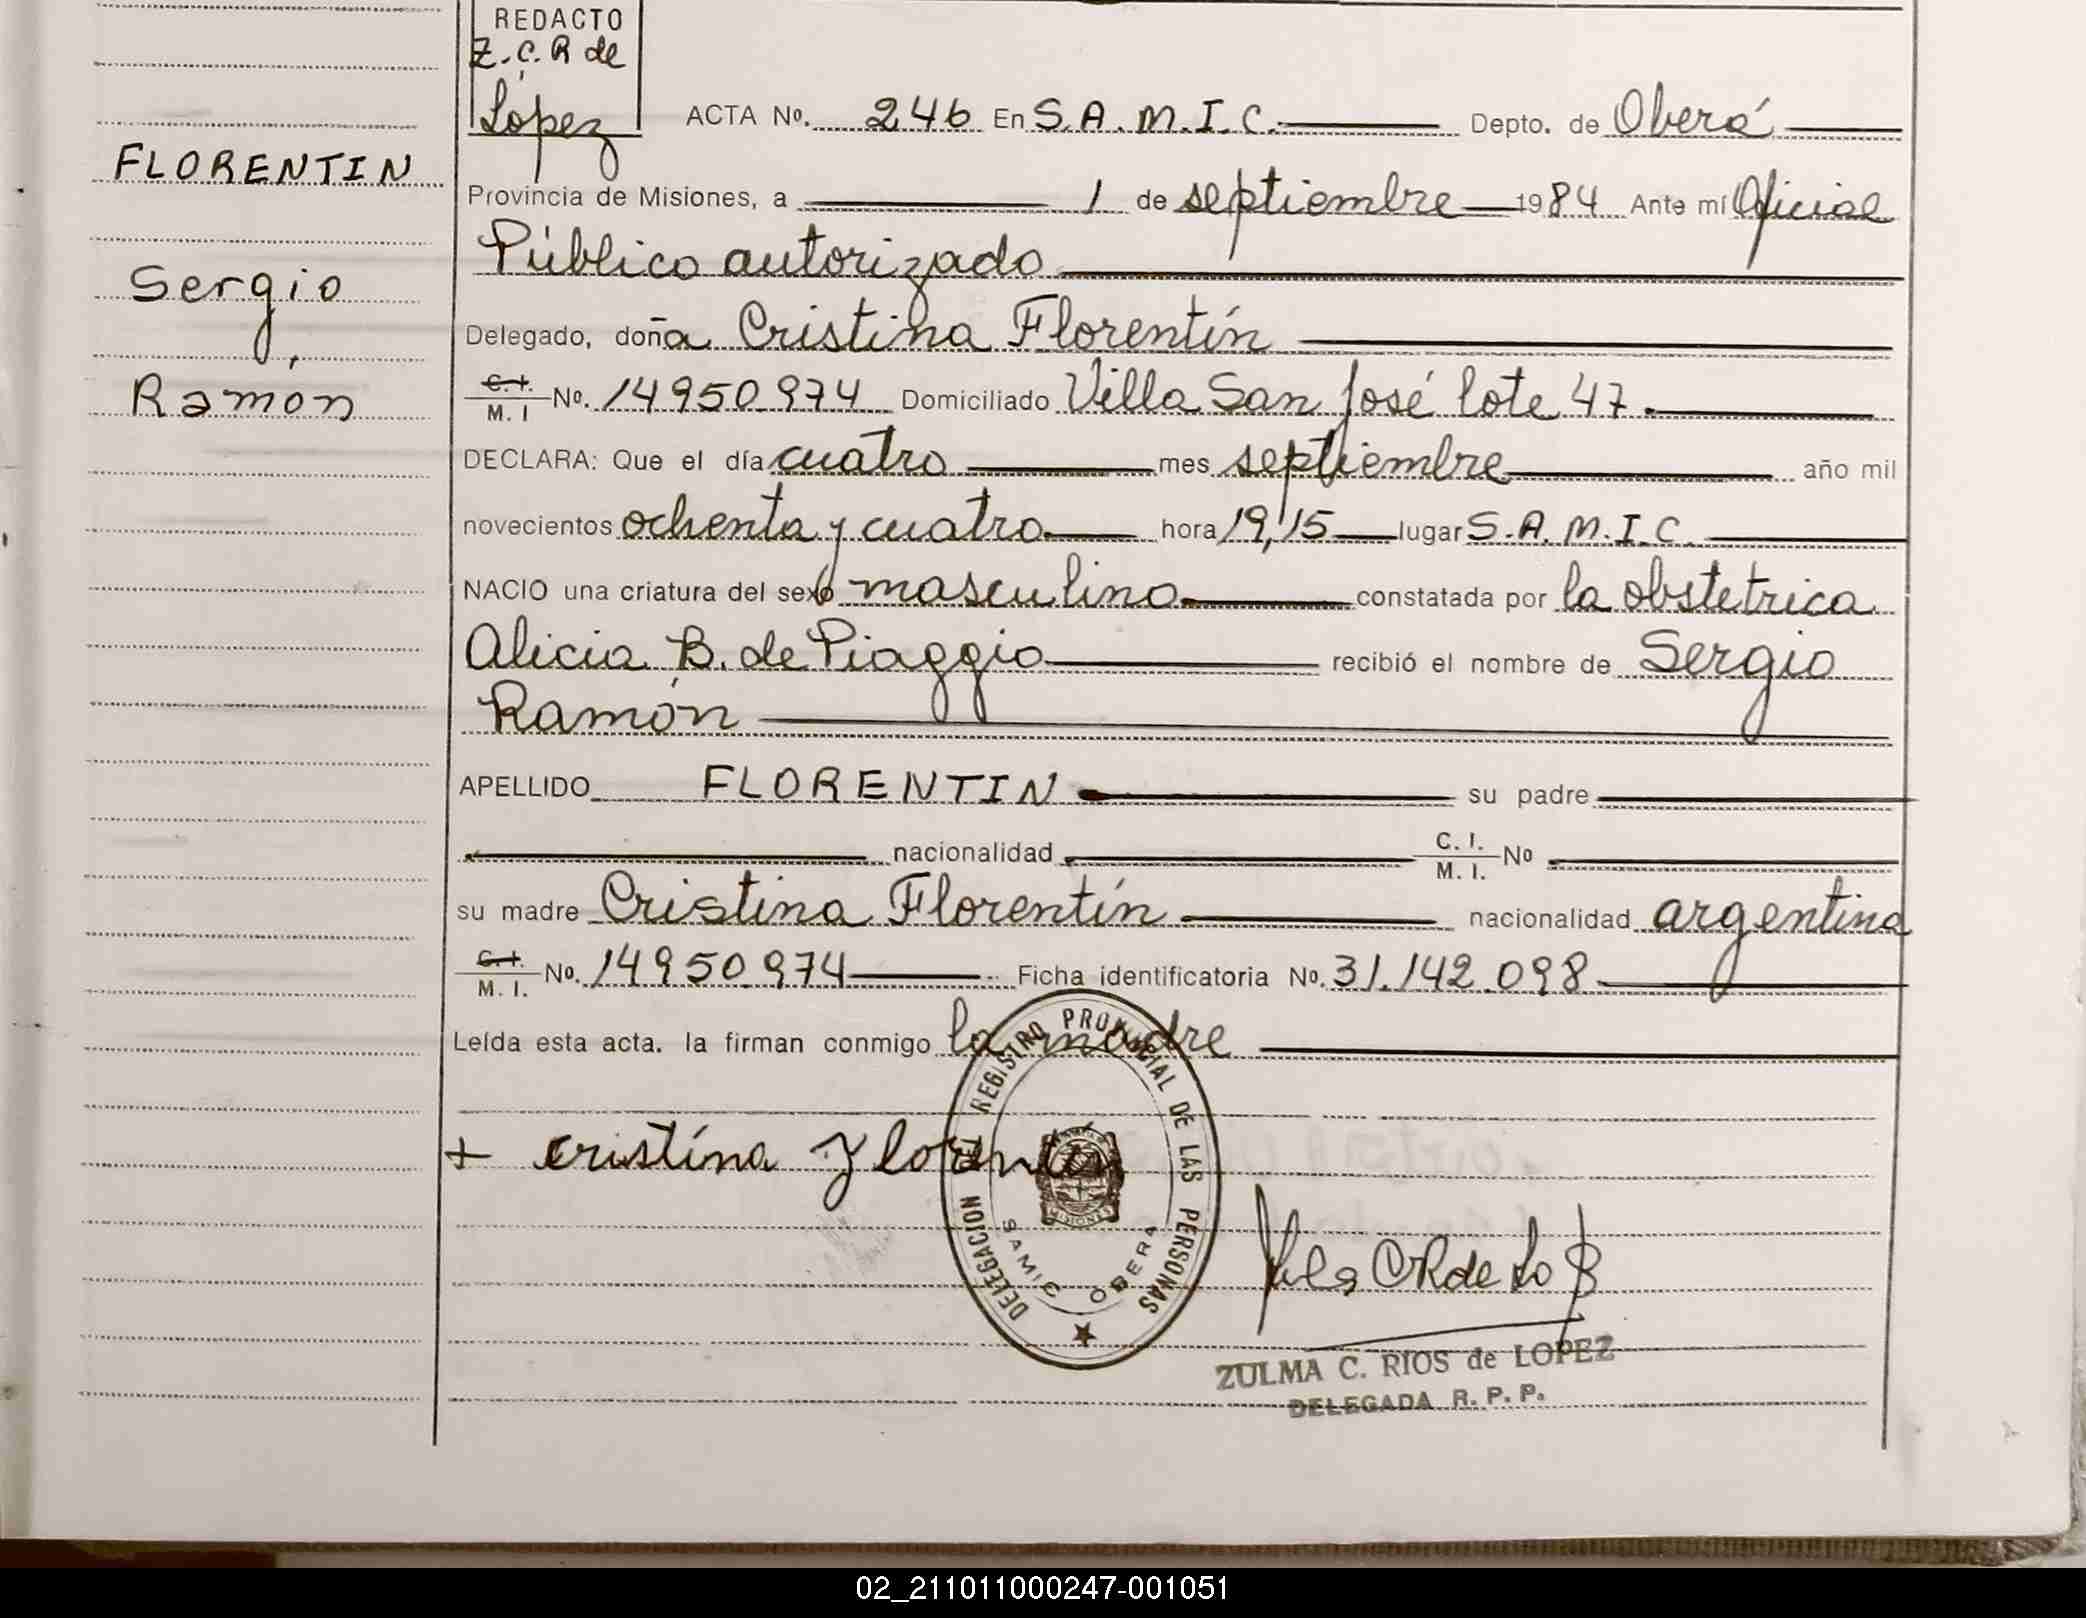 REDACTO
Z. C. R de
López
ACTA Nº. 246 En S. A. M. I. C. Depto. de Oberá
FLORENTIN
Provincia de Misiones, a 1 de septiembre 1984 Ante mí Oficial
Público autorizado
Sergio
Delegado, doña Cristina Florentín
Ramón
C. I. M. I Nº. 14950.974 Domiciliado Villa San José lote 47.
DECLARA: Que el día cuatro mes septiembre año mil
novecientos ochenta y cuatro hora 19,15 lugar S. A. M. I. C.
NACIO una criatura del sexo masculino constatada por la obstetrica
Alicia B. de Piaggio recibió el nombre de Sergio
Ramón
APELLIDO FLORENTIN su padre
nacionalidad C. I. M. I. Nº
su madre Cristina Florentín nacionalidad argentina
C. I. M. I. Nº. 14950.974 Ficha identificatoria Nº. 31.142.098
Leída esta acta. la firman conmigo la madre
+ cristína Florentín
DELEGACION REGISTRO PROVINCIAL DE LAS PERSONAS
MISIONES
SAMIC OBERA
ZULMA C. RIOS de LOPEZ
DELEGADA R. P. P.
02_211011000247-001051